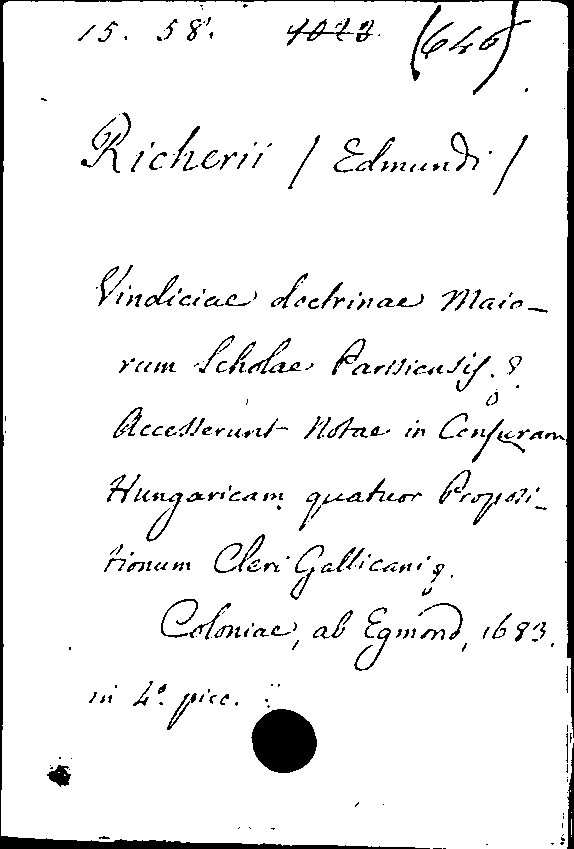 15. 58. 1023 (646)
Richerii / Edmundi /
Vindiciae doctrinae Maio-
rum Scholae Parisiensis. &
Accesserunt Notae in Censuram
Hungaricam quatuor Proposi-
tionum Cleri Gallicani &.
Coloniae, ab Egmond, 1683.
in 4º. picc.